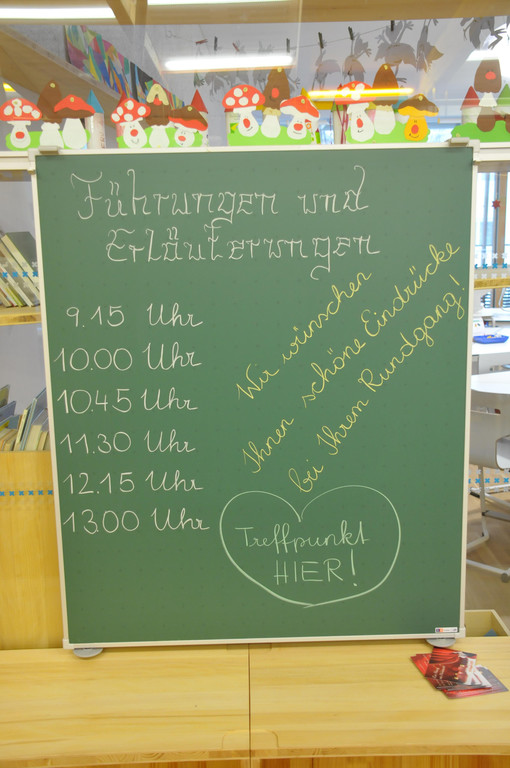 Führungen und
Erläuterungen
9.15 Uhr
10.00 Uhr
10.45 Uhr
11.30 Uhr
12.15 Uhr
13.00 Uhr
Wir wünschen
Ihnen schöne Eindrücke
bei Ihrem Rundgang!
Treffpunkt
HIER!